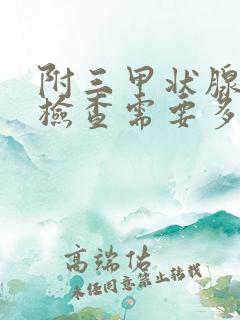 附三甲状腺
檢查需要多
高端佔
未经同意禁止转载